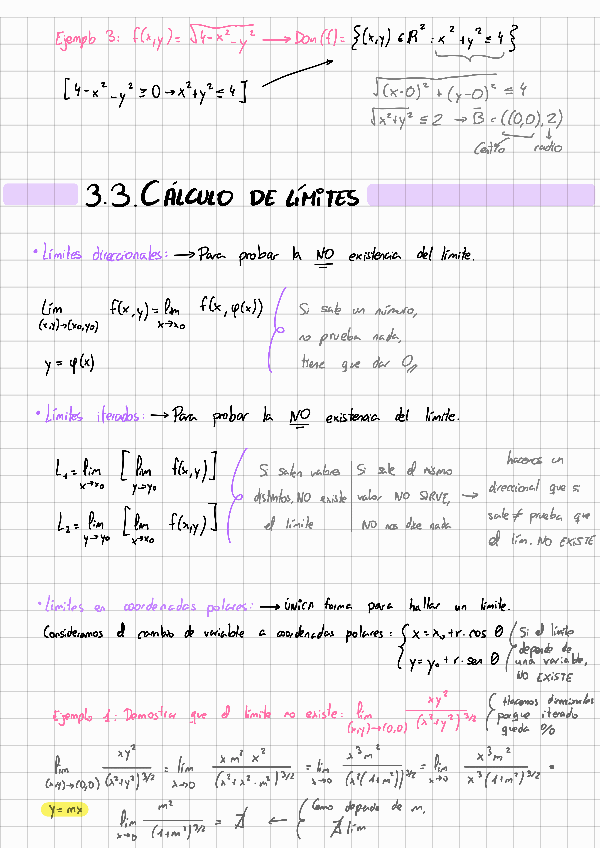 Ejemplo 3: f(x,y) = √(4-x²-y²) → Dom(f) = {(x,y) ∈ ℝ² : x²+y² ≤ 4}
[4-x²-y² ≥ 0 → x²+y² ≤ 4]
√((x-0)² + (y-0)²) ≤ 4
√(x²+y²) ≤ 2 → B̄ = ((0,0), 2)
Centro radio
3.3. CÁLCULO DE LÍMITES
• Límites direccionales: → Para probar la NO existencia del límite.
lim (x,y)→(x₀,y₀) f(x,y) = lim x→x₀ f(x, φ(x))
y = φ(x)
Si sale un número,
no prueba nada,
tiene que dar 0,,
• Límites iterados: → Para probar la NO existencia del límite.
L₁ = lim x→x₀ [lim y→y₀ f(x,y)]
L₂ = lim y→y₀ [lim x→x₀ f(x,y)]
Si salen valores
distintos, NO existe
el límite
Si sale el mismo
valor NO SIRVE, →
NO nos dice nada
hacemos un
direccional que si
sale ≠ prueba que
el lím. NO EXISTE
• Límites en coordenadas polares: → ÚNICA forma para hallar un límite.
Consideramos el cambio de variable a coordenadas polares: { x = x₀ + r · cos θ
y = y₀ + r · sen θ
Si el límite
depende de
una variable,
NO EXISTE
Ejemplo 1: Demostrar que el límite no existe: lim (x,y)→(0,0) xy² / (x²+y²)^3/2
Hacemos direccionales
porque iterado
queda 0/0
lim (x,y)→(0,0) xy² / (x²+y²)^3/2 = lim x→0 x m² x² / (x²+x²·m²)^3/2 = lim x→0 x³m² / (x²(1+m²))^3/2 = lim x→0 x³m² / x³(1+m²)^3/2 =
y = mx
lim x→0 m² / (1+m²)^3/2 = ∄ ← { Como depende de m,
∄ lím